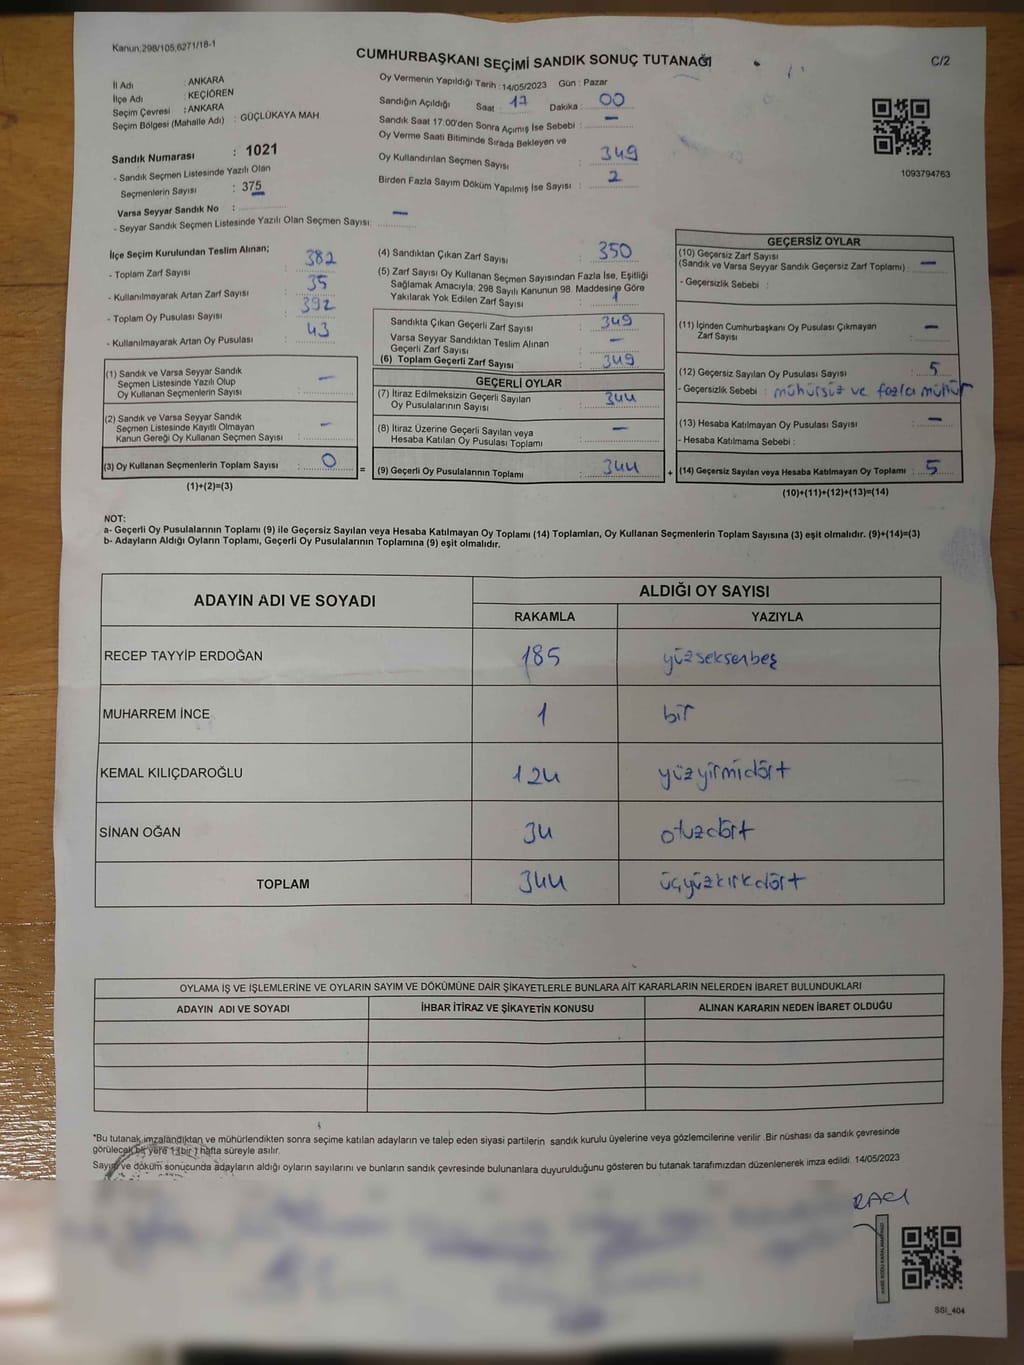 Kanun:298/105,6271/18-1
CUMHURBAŞKANI SEÇİMİ SANDIK SONUÇ TUTANAĞI
C/2
İl Adı : ANKARA
İlçe Adı : KEÇİÖREN
Seçim Çevresi : ANKARA
Seçim Bölgesi (Mahalle Adı) : GÜÇLÜKAYA MAH
Sandık Numarası : 1021
- Sandık Seçmen Listesinde Yazılı Olan
Seçmenlerin Sayısı : 375
Varsa Seyyar Sandık No :
- Seyyar Sandık Seçmen Listesinde Yazılı Olan Seçmen Sayısı: —
Oy Vermenin Yapıldığı Tarih : 14/05/2023 Gün : Pazar
Sandığın Açıldığı Saat : 17 Dakika : 00
Sandık Saat 17:00'den Sonra Açımış İse Sebebi : —
Oy Verme Saati Bitiminde Sırada Bekleyen ve
Oy Kullandırılan Seçmen Sayısı : 349
Birden Fazla Sayım Döküm Yapılmış İse Sayısı : 2
1093794763
İlçe Seçim Kurulundan Teslim Alınan;
- Toplam Zarf Sayısı : 382
- Kullanılmayarak Artan Zarf Sayısı : 35
- Toplam Oy Pusulası Sayısı : 392
- Kullanılmayarak Artan Oy Pusulası : 43
(1) Sandık ve Varsa Seyyar Sandık
Seçmen Listesinde Yazılı Olup
Oy Kullanan Seçmenlerin Sayısı : —
(2) Sandık ve Varsa Seyyar Sandık
Seçmen Listesinde Kayıtlı Olmayan
Kanun Gereği Oy Kullanan Seçmen Sayısı : —
(3) Oy Kullanan Seçmenlerin Toplam Sayısı : 0 =
(1)+(2)=(3)
(4) Sandıktan Çıkan Zarf Sayısı : 350
(5) Zarf Sayısı Oy Kullanan Seçmen Sayısından Fazla İse, Eşitliği
Sağlamak Amacıyla, 298 Sayılı Kanunun 98. Maddesine Göre
Yakılarak Yok Edilen Zarf Sayısı : 1
Sandıkta Çıkan Geçerli Zarf Sayısı : 349
Varsa Seyyar Sandıktan Teslim Alınan
Geçerli Zarf Sayısı : —
(6) Toplam Geçerli Zarf Sayısı : 349
GEÇERLİ OYLAR
(7) İtiraz Edilmeksizin Geçerli Sayılan
Oy Pusulalarının Sayısı : 344
(8) İtiraz Üzerine Geçerli Sayılan veya
Hesaba Katılan Oy Pusulası Toplamı : —
(9) Geçerli Oy Pusulalarının Toplamı : 344 +
GEÇERSİZ OYLAR
(10) Geçersiz Zarf Sayısı
(Sandık ve Varsa Seyyar Sandık Geçersiz Zarf Toplamı) : —
- Geçersizlik Sebebi :
(11) İçinden Cumhurbaşkanı Oy Pusulası Çıkmayan
Zarf Sayısı : —
(12) Geçersiz Sayılan Oy Pusulası Sayısı : 5
- Geçersizlik Sebebi : mühürsüz ve fazla mühür
(13) Hesaba Katılmayan Oy Pusulası Sayısı : —
- Hesaba Katılmama Sebebi :
(14) Geçersiz Sayılan veya Hesaba Katılmayan Oy Toplamı : 5
(10)+(11)+(12)+(13)=(14)
NOT:
a- Geçerli Oy Pusulalarının Toplamı (9) ile Geçersiz Sayılan veya Hesaba Katılmayan Oy Toplamı (14) Toplamları, Oy Kullanan Seçmenlerin Toplam Sayısına (3) eşit olmalıdır. (9)+(14)=(3)
b- Adayların Aldığı Oyların Toplamı, Geçerli Oy Pusulalarının Toplamına (9) eşit olmalıdır.
ADAYIN ADI VE SOYADI ALDIĞI OY SAYISI
RAKAMLA YAZIYLA
RECEP TAYYİP ERDOĞAN 185 yüzseksenbeş
MUHARREM İNCE 1 bir
KEMAL KILIÇDAROĞLU 124 yüzyirmidört
SİNAN OĞAN 34 otuzdört
TOPLAM 344 üçyüzkırkdört
OYLAMA İŞ VE İŞLEMLERİNE VE OYLARIN SAYIM VE DÖKÜMÜNE DAİR ŞİKAYETLERLE BUNLARA AİT KARARLARIN NELERDEN İBARET BULUNDUKLARI
ADAYIN ADI VE SOYADI İHBAR İTİRAZ VE ŞİKAYETİN KONUSU ALINAN KARARIN NEDEN İBARET OLDUĞU
*Bu tutanak imzalandıktan ve mühürlendikten sonra seçime katılan adayların ve talep eden siyasi partilerin sandık kurulu üyelerine veya gözlemcilerine verilir .Bir nüshası da sandık çevresinde
görülecek bir yere 1 (bir ) hafta süreyle asılır.
Sayım ve döküm sonucunda adayların aldığı oyların sayılarını ve bunların sandık çevresinde bulunanlara duyurulduğunu gösteren bu tutanak tarafımızdan düzenlenerek imza edildi. 14/05/2023
SSİ_404